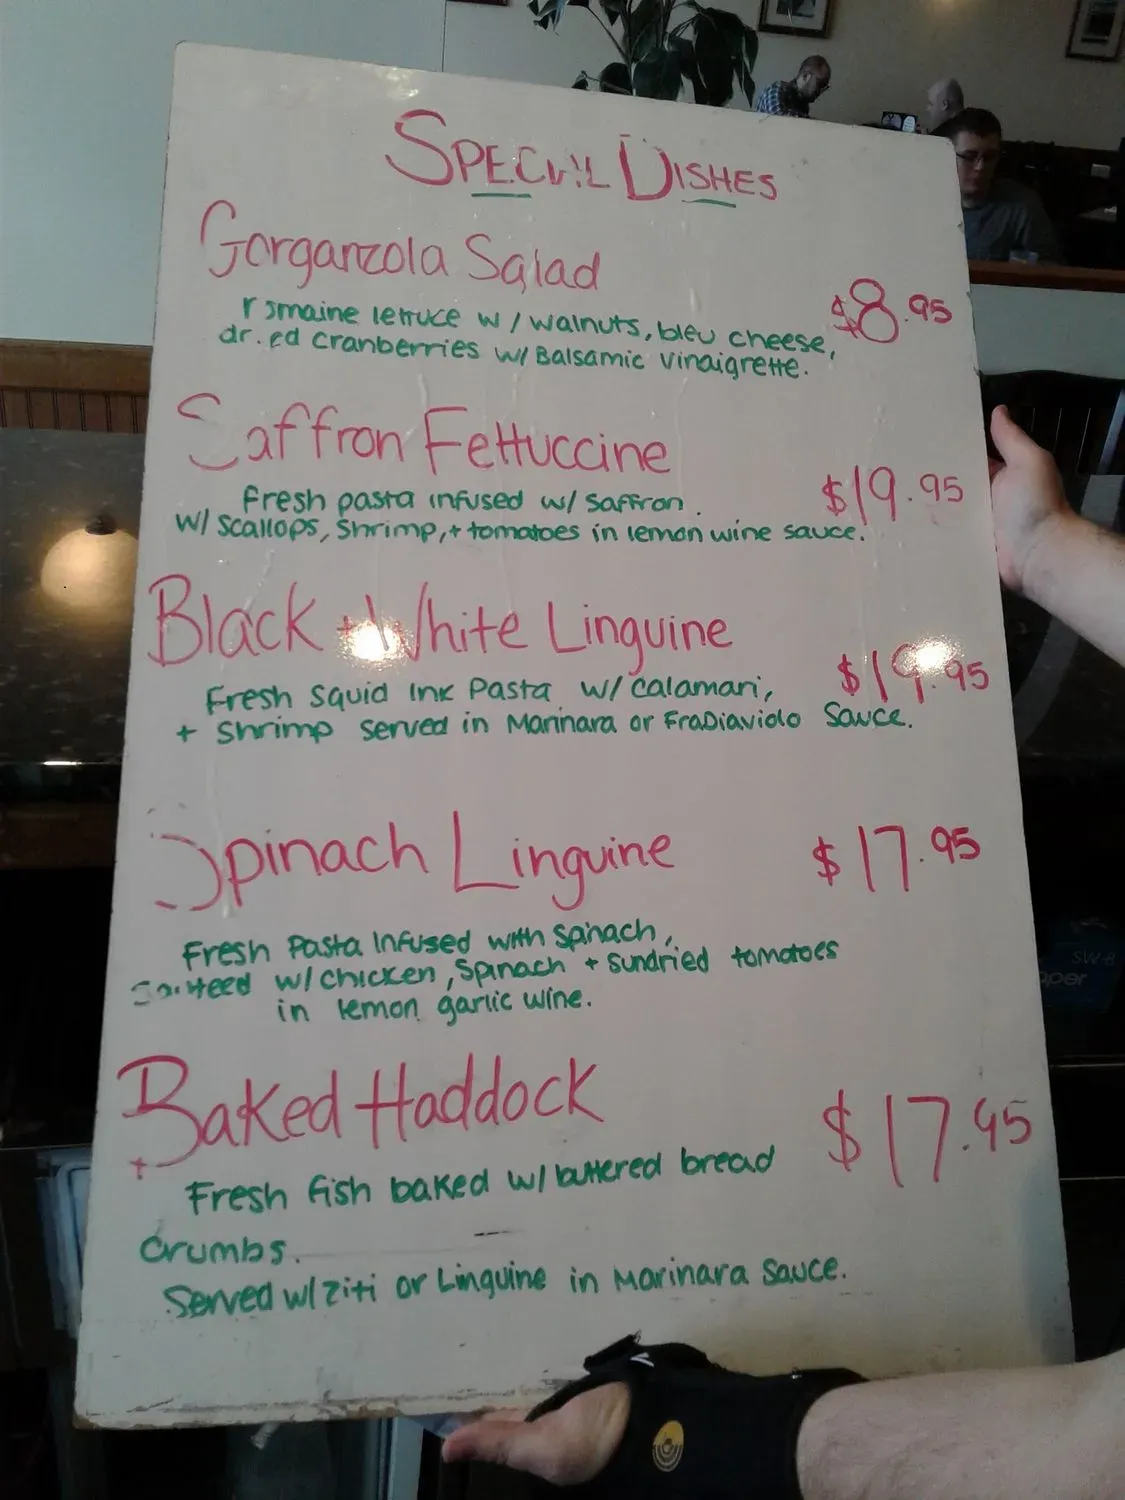 SPECIAL DISHES
Gorganzola Salad
romaine lettuce w/ walnuts, bleu cheese,
$8.95
dried cranberries w/ Balsamic vinaigrette.
Saffron Fettuccine
Fresh pasta infused w/ saffron.
$19.95
w/ scallops, shrimp, + tomatoes in lemon wine sauce.
Black + White Linguine
Fresh Squid Ink Pasta w/ calamari,
$19.95
+ Shrimp served in Marinara or FraDiavlolo Sauce.
Spinach Linguine
$17.95
Fresh Pasta Infused with Spinach,
Sauteed w/ chicken, Spinach + sundried tomatoes
in lemon garlic wine.
Baked Haddock
$17.95
Fresh fish baked w/ buttered bread
Crumbs.
Served w/ ziti or Linguine in Marinara Sauce.